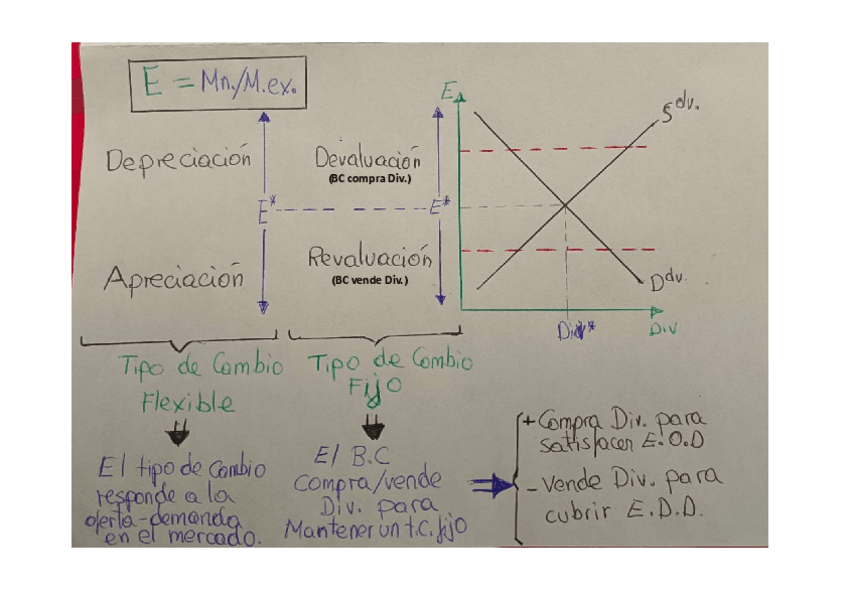 E = Mn./M.ex.
Depreciación
Devaluación
(BC compra Div.)
E
S dv.
E*
E*
Apreciación
Revaluación
(BC vende Div.)
D dv.
Div*
Div
Tipo de Cambio
Flexible
Tipo de Cambio
Fijo
El tipo de Cambio
responde a la
oferta-demanda
en el mercado.
El B.C
Compra/vende
Div. para
Mantener un t.c. fijo
+ Compra Div. para
satisfacer E.O.D
- Vende Div. para
cubrir E.D.D.